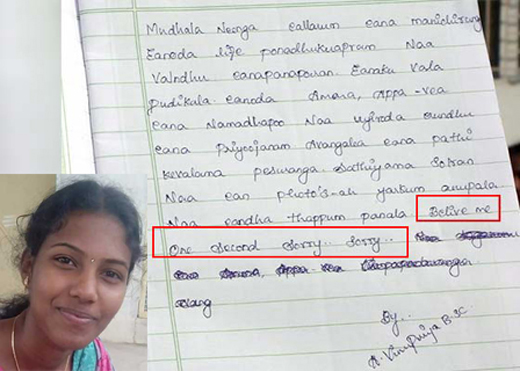 Mudhala Neenga eallarum eana manichirung
Eanoda life ponadhukuapram Naa
Valndhu eanapanapowran. Eanaku Vala
Pudikala. eanoda Amma, Appa -vea
eana Namadhapoo Naa uyiroda eundhu
eana Priyoojanam Avangalea eana pathi
kevalama pesuranga. Sathiyama Solran
Naa ean photo's-ah yarkum anupala
Naa eandha thappum panala Belive me
One Second Sorry.. Sorry...
By..
A. Vinupriya B.SC